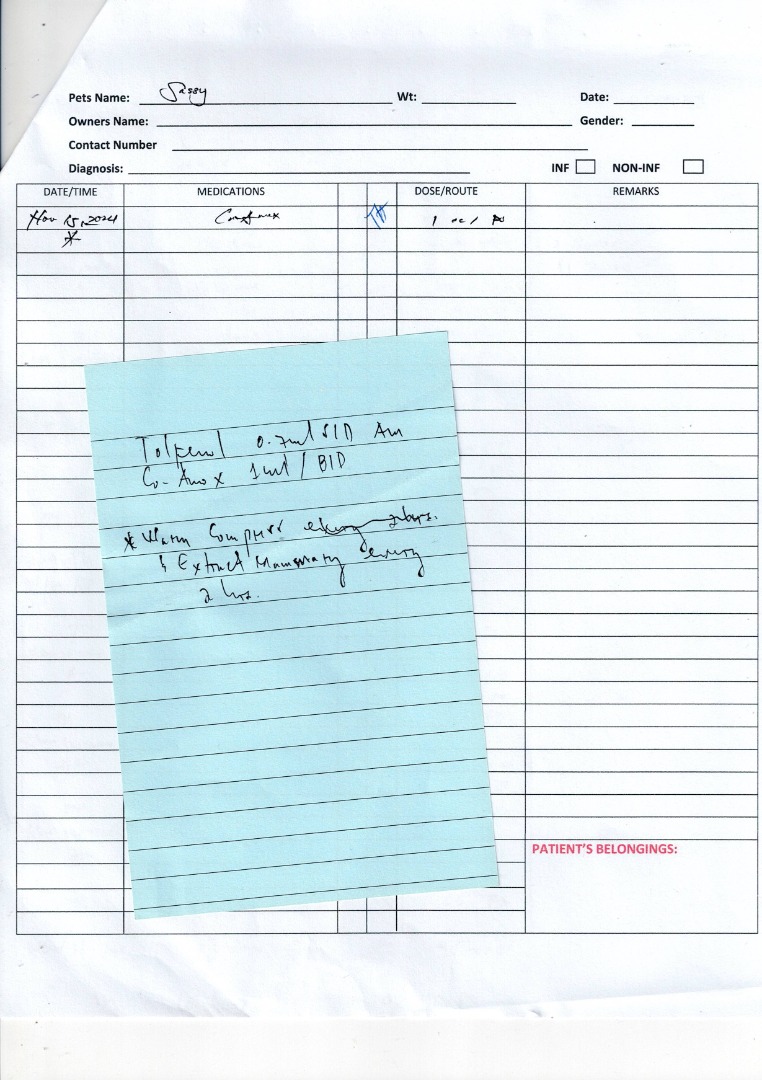 Pets Name: Sassy Wt: Date:
Owners Name: Gender:
Contact Number
Diagnosis: INF NON-INF
DATE/TIME MEDICATIONS DOSE/ROUTE REMARKS
Nov 15, 2024 1 cc / PO
*
Tolfenol 0.7ml SID Am
Co-Amox 1ml / BID
* Warm Compress every 2hrs.
& Extract Mammary every
2 hrs.
PATIENT'S BELONGINGS: